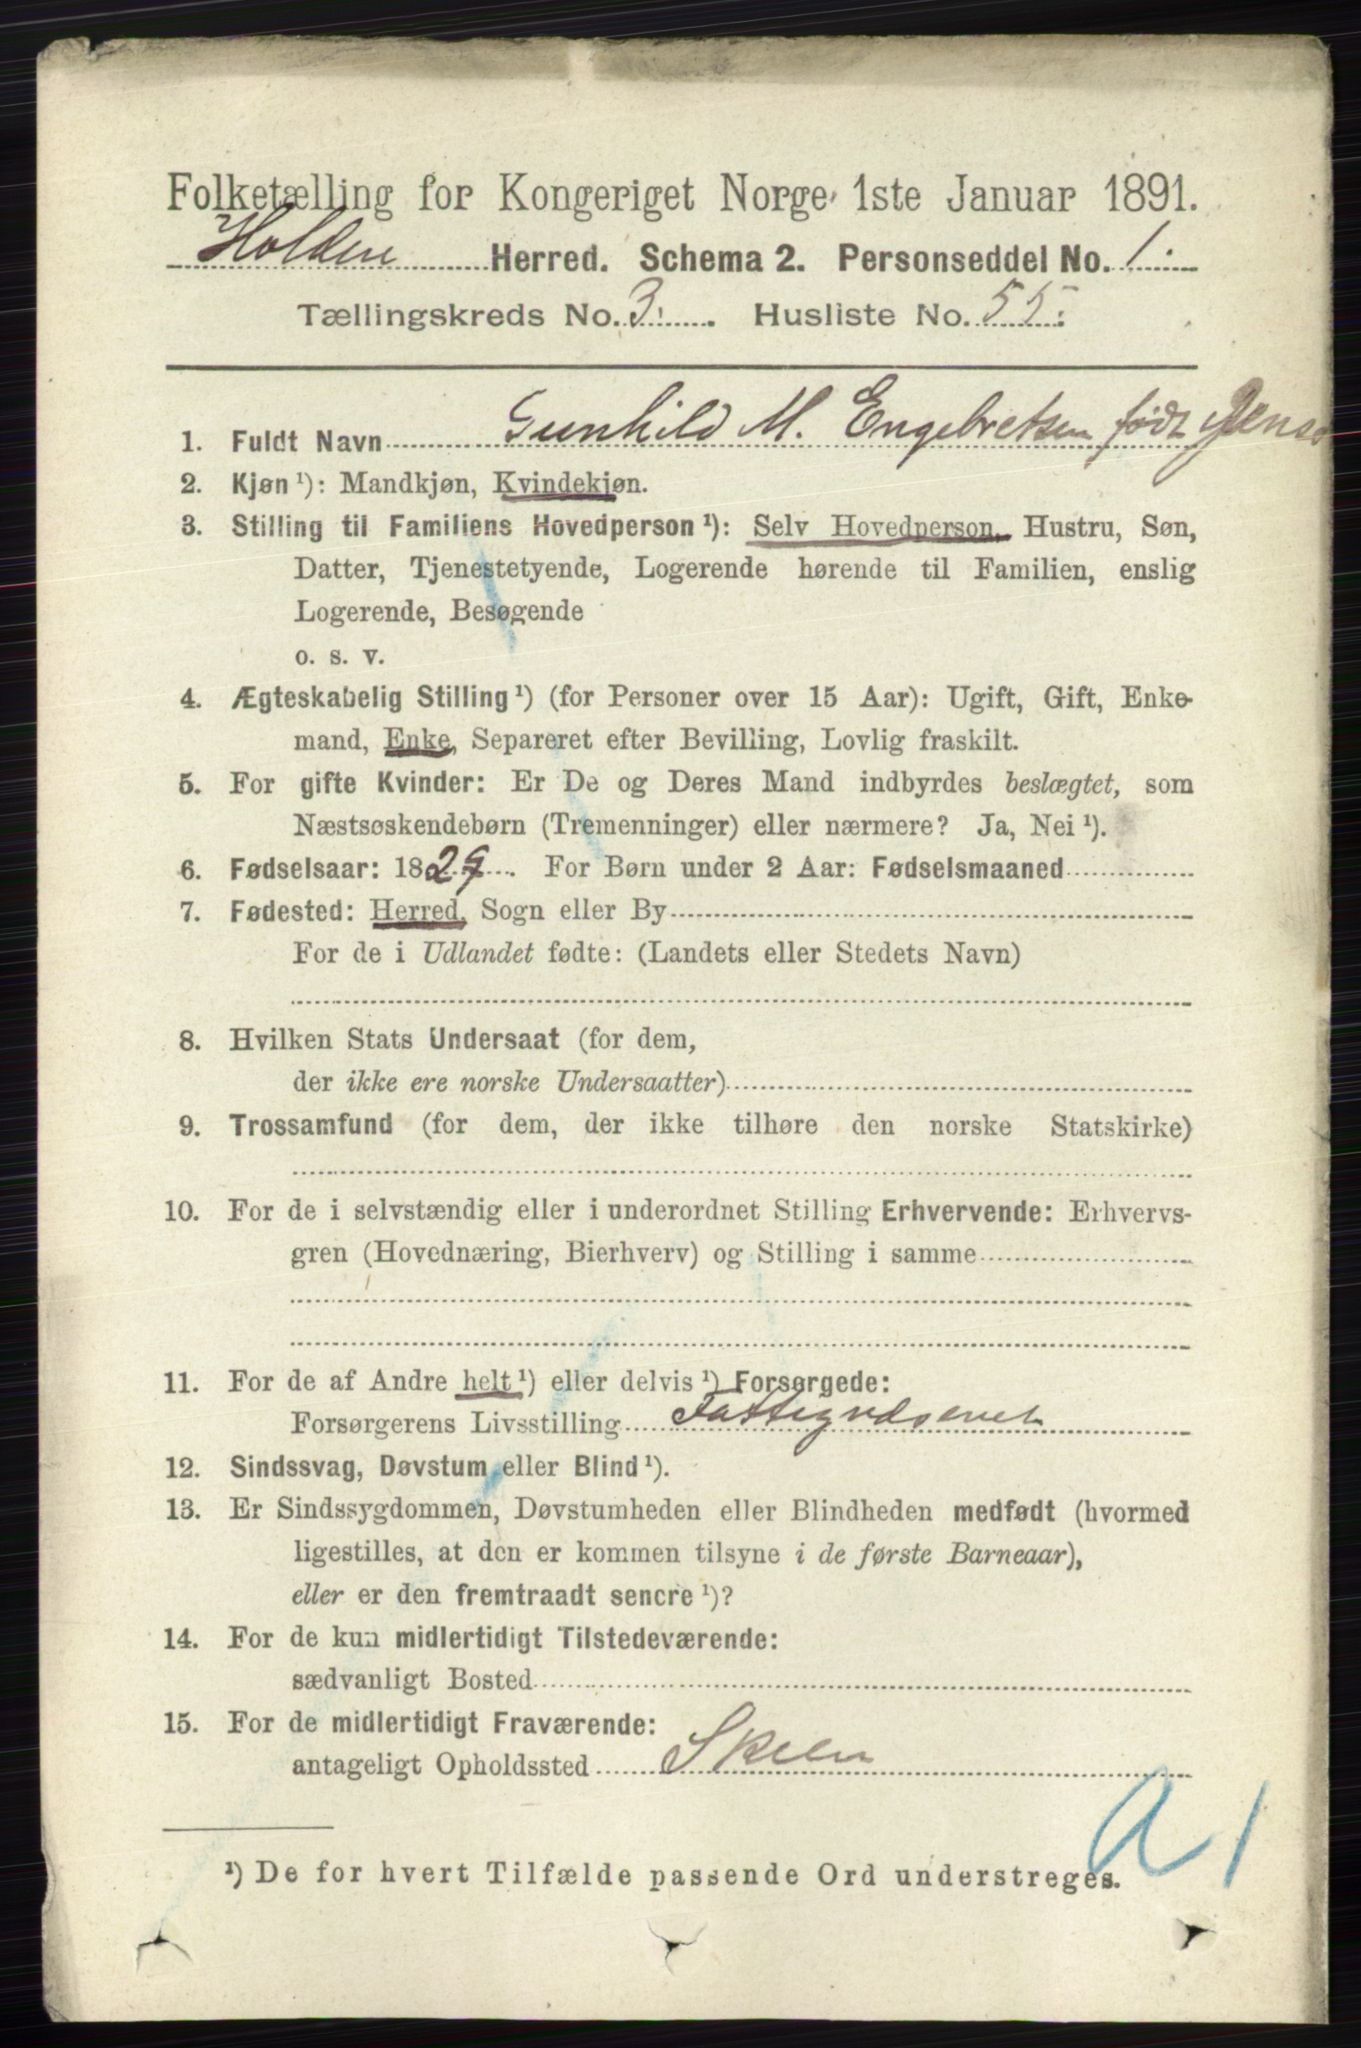 Folketælling for Kongeriget Norge 1ste Januar 1891.
Holden Herred. Schema 2. Personseddel No. 1.
Tællingskreds No. 3. Husliste No. 55.
1. Fuldt Navn Gunhild M. Engebretsen født Jens
2. Kjøn ¹): Mandkjøn, Kvindekjøn.
3. Stilling til Familiens Hovedperson ¹): Selv Hovedperson, Hustru, Søn,
Datter, Tjenestetyende, Logerende hørende til Familien, enslig
Logerende, Besøgende
o. s. v.
4. Ægteskabelig Stilling ¹) (for Personer over 15 Aar): Ugift, Gift, Enke-
mand, Enke, Separeret efter Bevilling, Lovlig fraskilt.
5. For gifte Kvinder: Er De og Deres Mand indbyrdes beslægtet, som
Næstsøskendebørn (Tremenninger) eller nærmere? Ja, Nei ¹).
6. Fødselsaar: 1829. For Børn under 2 Aar: Fødselsmaaned
7. Fødested: Herred, Sogn eller By
For de i Udlandet fødte: (Landets eller Stedets Navn)
8. Hvilken Stats Undersaat (for dem,
der ikke ere norske Undersaatter)
9. Trossamfund (for dem, der ikke tilhøre den norske Statskirke)
10. For de i selvstændig eller i underordnet Stilling Erhvervende: Erhvervs-
gren (Hovednæring, Bierhverv) og Stilling i samme
11. For de af Andre helt ¹) eller delvis ¹) Forsørgede:
Forsørgerens Livsstilling Fattigvæsenet
12. Sindssvag, Døvstum eller Blind ¹).
13. Er Sindssygdommen, Døvstumheden eller Blindheden medfødt (hvormed
ligestilles, at den er kommen tilsyne i de første Barneaar),
eller er den fremtraadt senere ¹)?
14. For de kun midlertidigt Tilstedeværende:
sædvanligt Bosted
15. For de midlertidigt Fraværende:
antageligt Opholdssted Skien
A 1
¹) De for hvert Tilfælde passende Ord understreges.